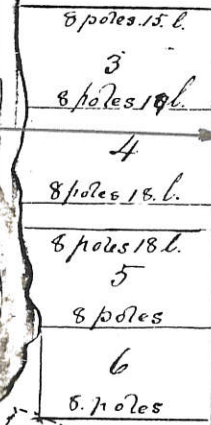 8 poles. 15. l.
3
8 poles 18 l.
4
8 poles, 18. l.
8 poles 18 l.
5
8 poles
6
8. poles